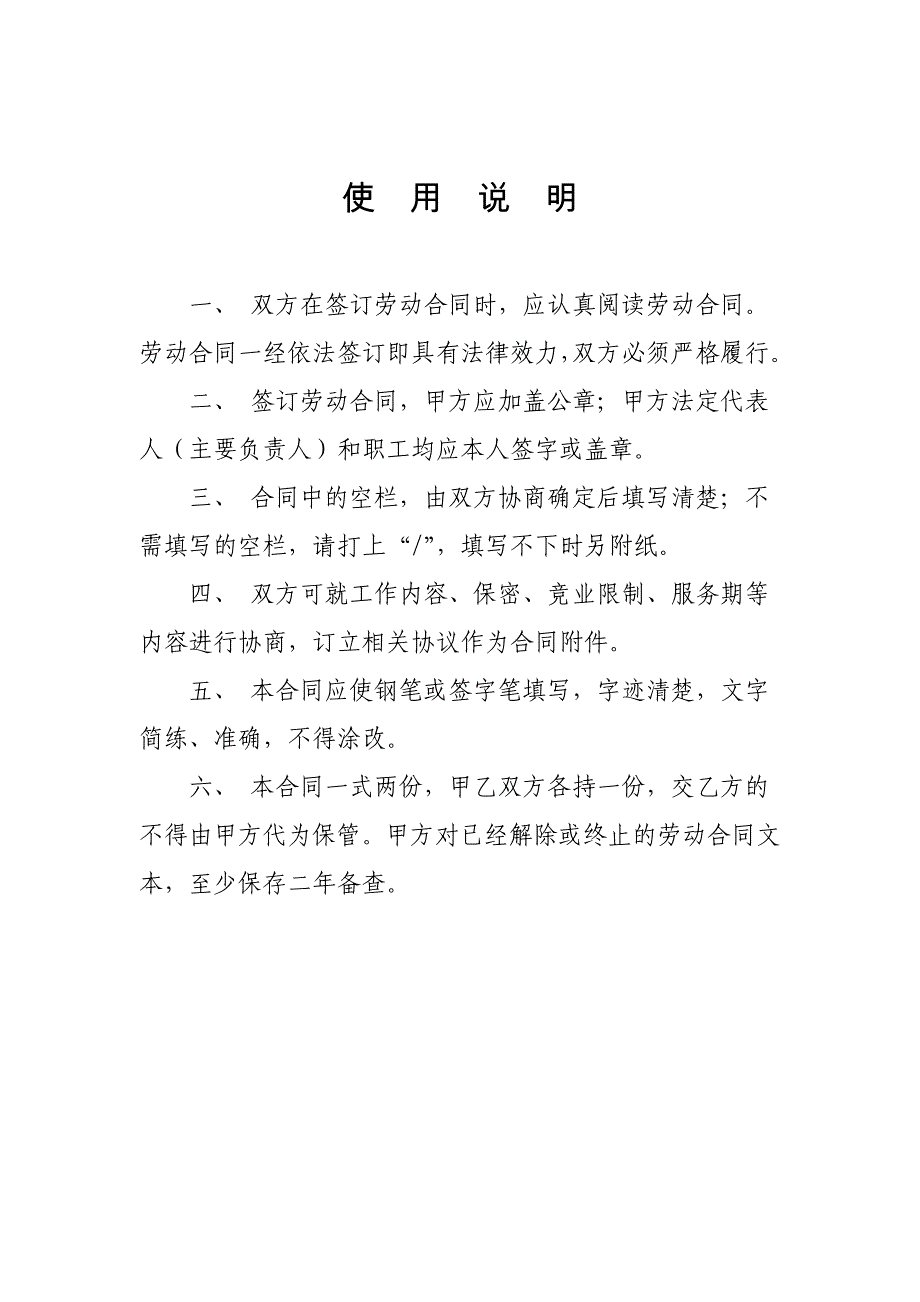 使 用 说 明
一、 双方在签订劳动合同时，应认真阅读劳动合同。
劳动合同一经依法签订即具有法律效力，双方必须严格履行。
二、 签订劳动合同，甲方应加盖公章；甲方法定代表
人（主要负责人）和职工均应本人签字或盖章。
三、 合同中的空栏，由双方协商确定后填写清楚；不
需填写的空栏，请打上“/”，填写不下时另附纸。
四、 双方可就工作内容、保密、竞业限制、服务期等
内容进行协商，订立相关协议作为合同附件。
五、 本合同应使钢笔或签字笔填写，字迹清楚，文字
简练、准确，不得涂改。
六、 本合同一式两份，甲乙双方各持一份，交乙方的
不得由甲方代为保管。甲方对已经解除或终止的劳动合同文
本，至少保存二年备查。